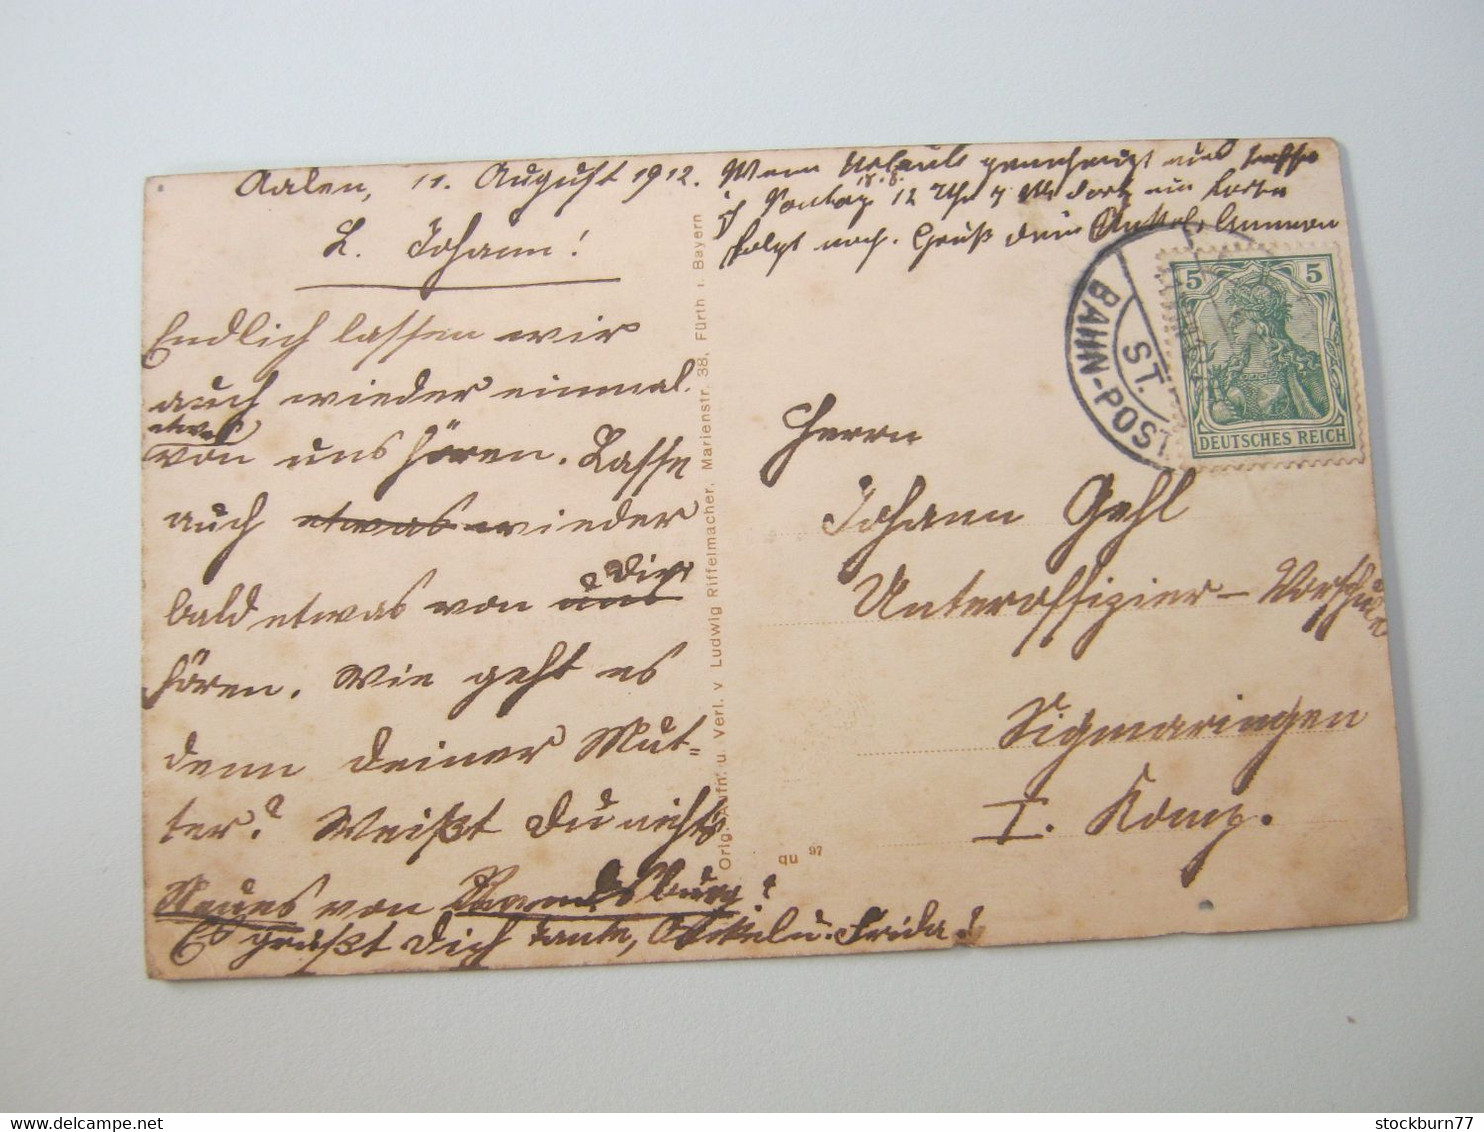 Aalen, 11. August 1912.
L. Johann!
Endlich lassen wir
auch wieder einmal
etwas
von uns hören. Lasse
auch etwas wieder
bald etwas von uns
Dir
hören. Wie geht es
denn Deiner Mut-
ter? Weißt Du nichts
Neues von
Es grüßt Dich Tante, Onkel u. Frida.
Wenn Urlaub genehmigt
ich Sonntag 12 Uhr 7 dort ein
18.8.
folgt noch. Gruß Dein Onkel,
Orig. Aufn. u. Verl. v Ludwig Riffelmacher, Marienstr. 38, Fürth i. Bayern
qu 97
BAHN-POST
ST.
5 5
DEUTSCHES REICH
Herrn
Johann Gehl
Unteroffizier-Vorschule
Sigmaringen
I. Komp.
stockburn77